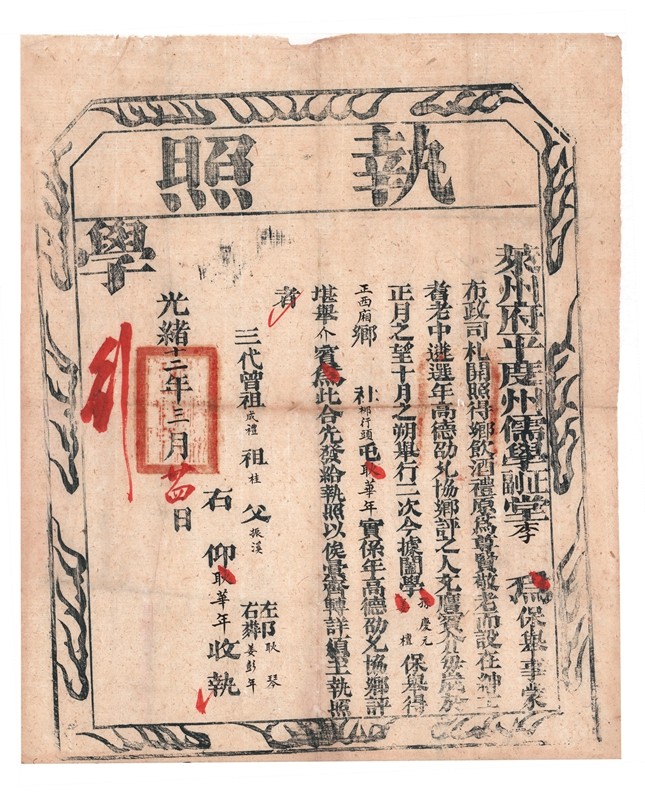 執照
萊州府平度州儒學正堂李
副
為保舉事蒙
布政司札開照得鄉飲酒禮原為尊賢敬老而設在紳士
耆老中遴選年高德劭允協鄉評之人充膺賓介每歲於
正月之望十月之朔舉行二次今據闔學孫慶元
禮保舉得
正西廂鄉 社柳行頭屯耿華年實係年高德劭允協鄉評
堪舉介賓為此合先發給執照以俟彙齊轉詳須至執照
者
三代曾祖成禮 祖桂 父振漢
左耶耿琴
右鄰姜彭年
右仰耿華年收執
光緒十二年三月廿四日
學